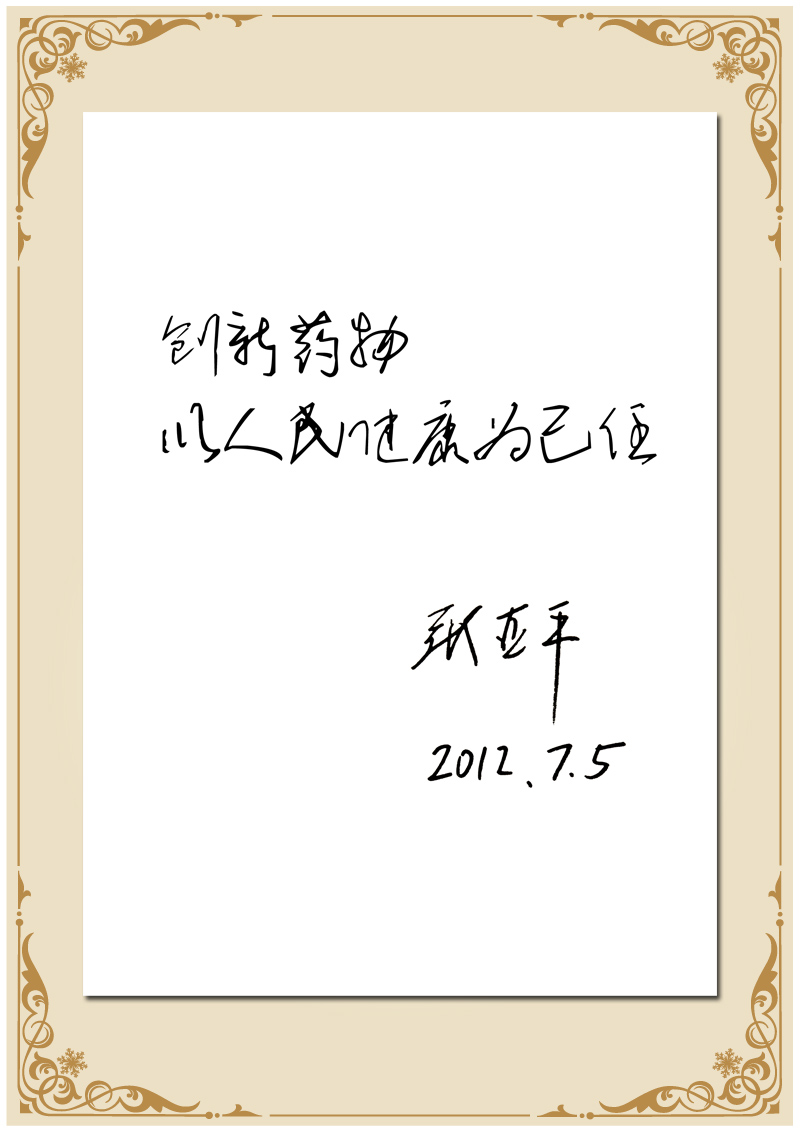 创新药物
以人民健康为己任
张亚平
2012.7.5